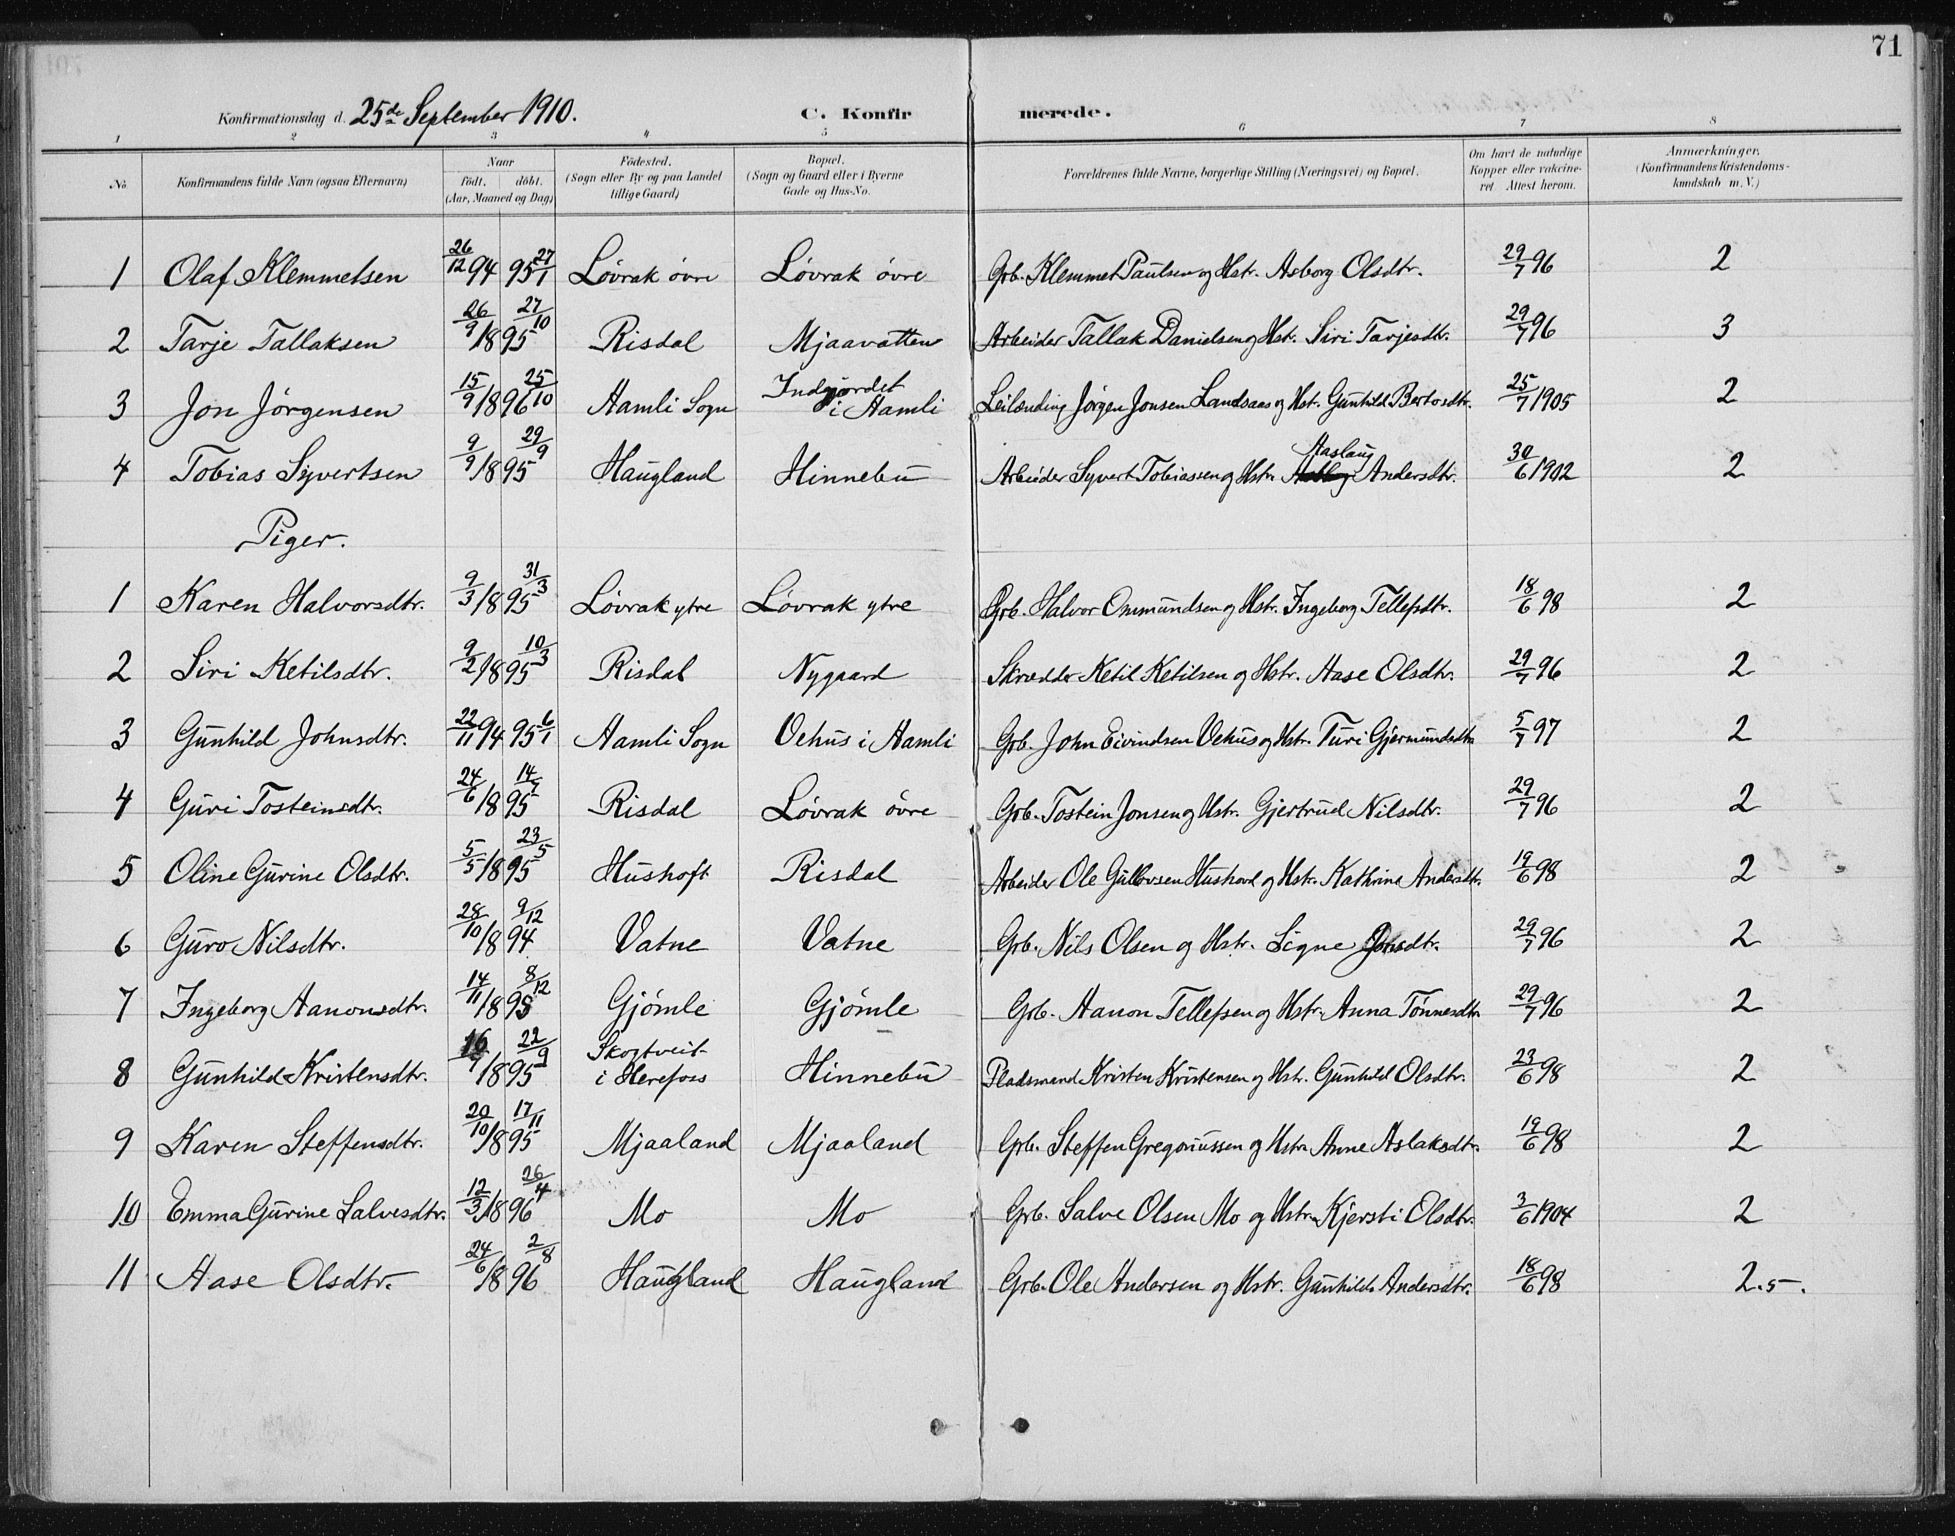 71
Konfirmationsdag d. 25de September 1910. C. Konfirmerede.
1 2 3 4 5 6 7 8
No. Konfirmandens fulde Navn (ogsaa Efternavn) Naar født. døbt. (Aar, Maaned og Dag) Fødested. (Sogn eller By og paa Landet tillige Gaard) Bopæl. (Sogn og Gaard eller i Byerne Gade og Hus-No. Forældrenes fulde Navne, borgerlige Stilling (Næringsvei) og Bopæl. Om havt de naturlige Kopper eller vakcineret. Attest herom. Anmærkninger. (Konfirmandens Kristendomskundskab m. V.)
1 Olaf Klemmetsen 26/12 94 95 27/1 Løvrak øvre Løvrak øvre Grb. Klemmet Paulsen og Hstr. Asborg Olsdtr. 29/7 96 2
2 Tarje Tallaksen 26/9 1895 27/10 Risdal Mjaavatten Arbeider Tallak Danielsen og Hstr. Siri Tarjesdtr. 29/7 96 3
3 Jon Jørgensen 15/9 1896 25/10 Aamli Sogn Indgjordet i Aamli Leilænding Jørgen Jonsen Landsaas og Hstr. Gunhild Bertosdtr. 25/7 1905 2
4 Tobias Syvertsen 9/9 1895 29/9 Haugland Hinnebu Arbeider Syvert Tobiassen og Hstr. Aaslaug Andersdtr. 30/6 1902 2
Piger.
1 Karen Halvorsdtr. 9/3 1895 31/3 Løvrak ytre Løvrak ytre Grb. Halvor Ommundsen og Hstr. Ingeborg Tellefsdtr. 18/6 98 2
2 Siri Ketilsdtr. 9/2 1895 10/3 Risdal Nygaard Skrædder Ketil Ketilsen og Hstr. Aase Olsdtr. 29/7 96 2
3 Gunhild Johnsdtr. 22/11 94 95 6/1 Aamli Sogn Vehus i Aamli Grb. John Eivindsen Vehus og Hstr. Turi Gjermundsdtr 5/7 97 2
4 Guri Tosteinsdtr. 24/6 1895 14/7 Risdal Løvrak øvre Grb. Tostein Jonsen og Hstr. Gjertrud Nilsdtr. 29/7 96 2
5 Oline Gurine Olsdtr. 5/5 1895 23/5 Hushoft Risdal Arbeider Ole Gullovsen Hushovd og Hstr. Kathrine Andersdtr. 19/6 98 2
6 Guro Nilsdtr. 28/10 1894 9/12 Vatne Vatne Grb. Nils Olsen og Hstr. Signe Jonsdtr. 29/7 96 2
7 Ingeborg Aanonsdtr. 14/11 1895 8/12 Gjømle Gjømle Grb. Aanon Tellefsen og Hstr. Anna Tønnesdtr 29/7 96 2
8 Gunhild Kristensdtr. 16/7 1895 22/9 Skogtveit i Herefoss Hinnebu Pladsmand Kristen Kristensen og Hstr. Gunhild Olsdtr. 23/6 98 2
9 Karen Steffensdtr. 20/10 1895 17/11 Mjaaland Mjaaland Grb. Steffen Gregoriussen og Hstr. Anne Aslaksdtr. 19/6 98 2
10 Emma Gurine Salvesdtr. 12/3 1896 26/4 Mo Mo Grb. Salve Olsen Mo og Hstr. Kjersti Olsdtr. 3/6 1904 2
11 Aase Olsdtr. 24/6 1896 2/8 Haugland Haugland Grb. Ole Andersen og Hstr. Gunhild Andersdtr. 18/6 98 2.5.